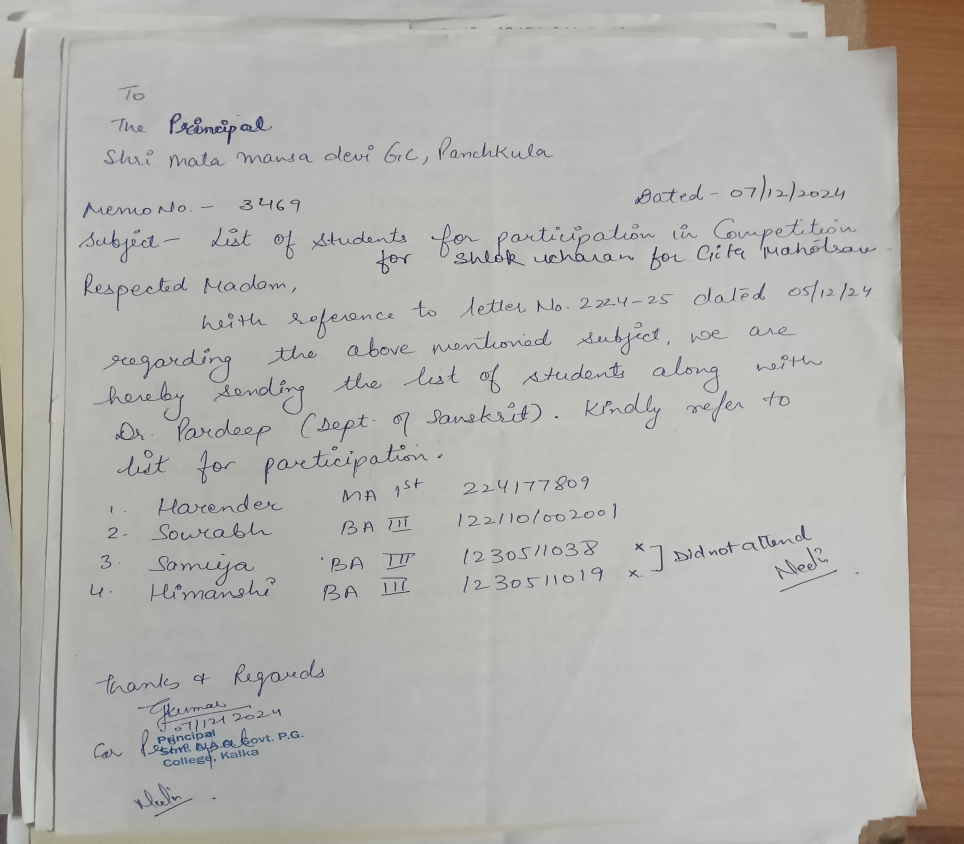 To
The Principal
Shri Mata Mansa devi GC, Panchkula
Memo No. - 3469
Dated - 07/12/2024
Subject - List of students for participation in Competition
for Shlok ucharan for Gita Mahotsav.
Respected Madam,
With reference to letter No. 2224-25 dated 05/12/24
regarding the above mentioned subject, we are
hereby sending the list of students along with
Dr. Pardeep (Dept. of Sanskrit). Kindly refer to
list for participation.
1. Harender MA 1st 224177809
2. Sourabh BA III 122110/002001
3. Samiya BA III 1230511038 x
4. Himanshi BA III 1230511019 x
] Did not attend
Neeli
Thanks & Regards
Kumar
07/12/2024
for Principal
Principal
Govt. P.G.
College, Kalka